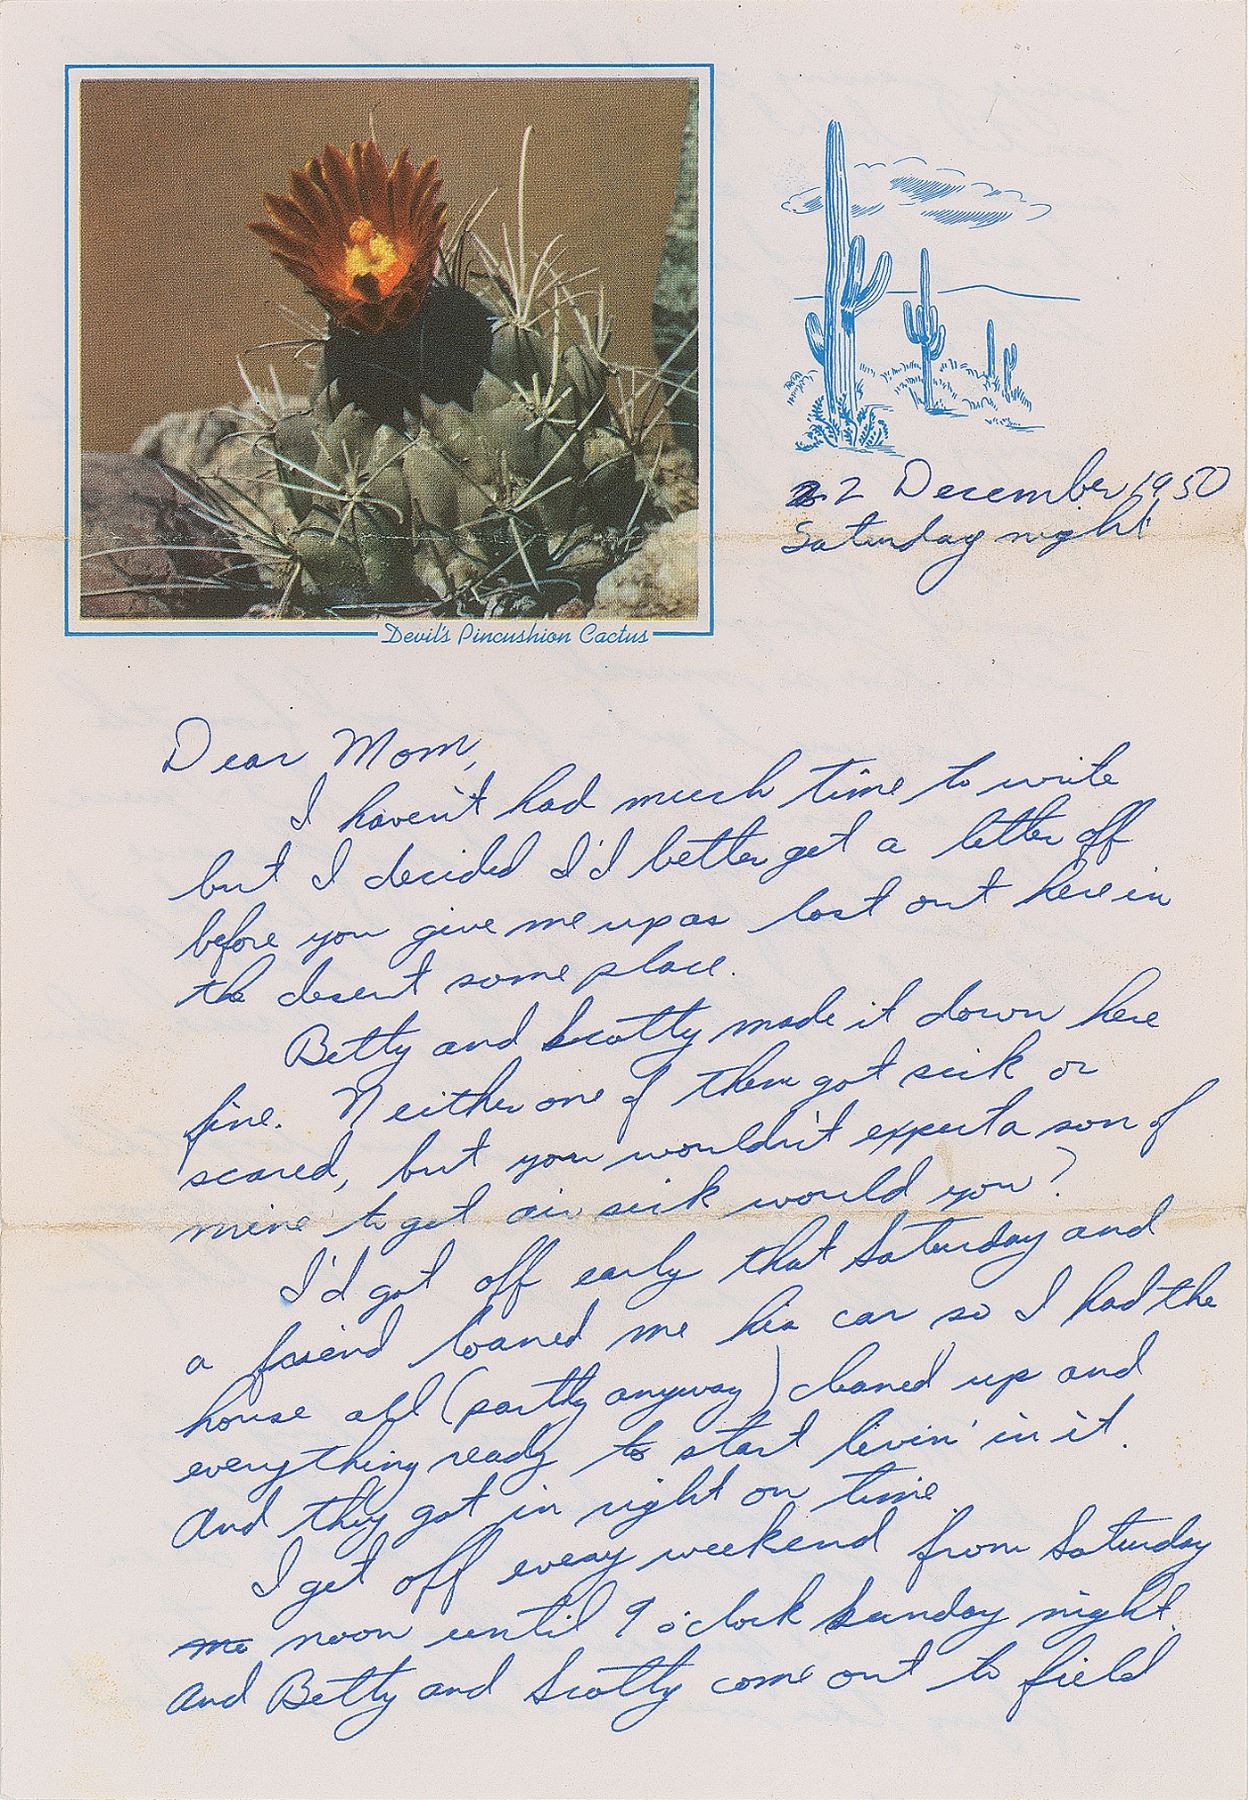 Devil's Pincushion Cactus
2 December 1950
Saturday night
Dear Mom,
I haven't had much time to write
but I decided I'd better get a letter off
before you give me up as lost out here in
the desert some place.
Betty and Scotty made it down here
fine. Neither one of them got sick or
scared, but you wouldn't expect a son of
mine to get air sick would you?
I'd got off early that Saturday and
a friend loaned me his car so I had the
house all (partly anyway) cleaned up and
everything ready to start livin' in it.
And they got in right on time.
I get off every weekend from Saturday
noon until 9 o'clock Sunday night.
And Betty and Scotty come out to field